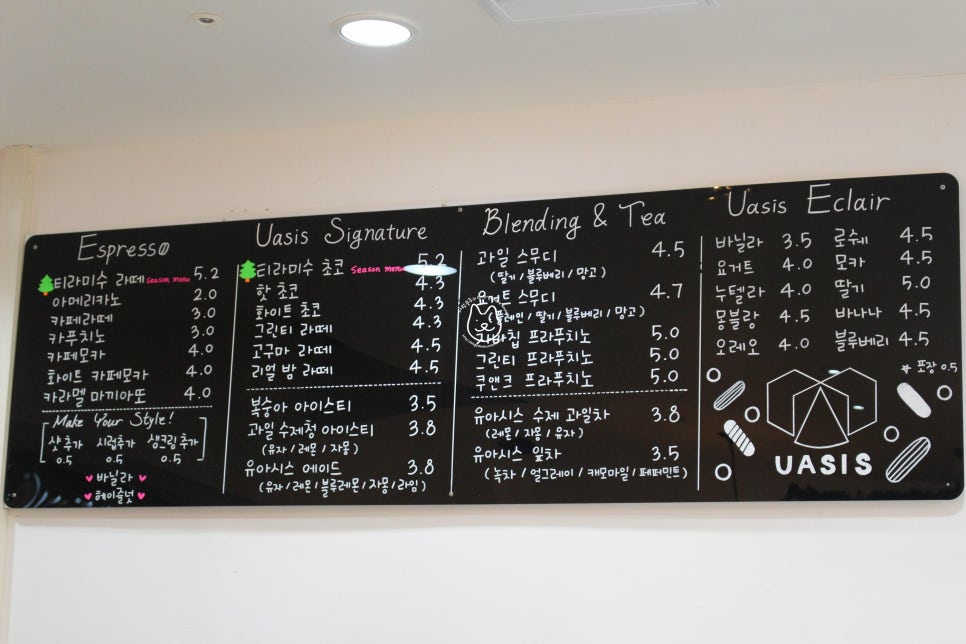 Espresso
티라미수 라떼 Season menu 5.2
아메리카노 2.0
카페라떼 3.0
카푸치노 3.0
카페모카 4.0
화이트 카페모카 4.0
카라멜 마끼아또 4.0
Make Your Style!
샷추가 시럽추가 생크림추가
0.5 0.5 0.5
바닐라
헤이즐넛
Uasis Signature
티라미수 초코 Season menu 5.2
핫 초코 4.3
화이트 초코 4.3
그린티 라떼 4.3
고구마 라떼 4.5
리얼 밤 라떼 4.5
복숭아 아이스티 3.5
과일 수제청 아이스티 3.8
(유자/레몬/자몽)
유아시스 에이드 3.8
(유자/레몬/블루레몬/자몽/라임)
Blending & Tea
과일 스무디 4.5
(딸기/블루베리/망고)
요거트 스무디 4.7
(플레인/딸기/블루베리/망고)
자바칩 프라푸치노 5.0
그린티 프라푸치노 5.0
쿠앤크 프라푸치노 5.0
유아시스 수제 과일차 3.8
(레몬/자몽/유자)
유아시스 잎차 3.5
(녹차/얼그레이/캐모마일/페퍼민트)
Uasis Eclair
바닐라 3.5 로쉐 4.5
요거트 4.0 모카 4.5
누텔라 4.0 딸기 5.0
몽블랑 4.5 바나나 4.5
오레오 4.0 블루베리 4.5
포장 0.5
UASIS